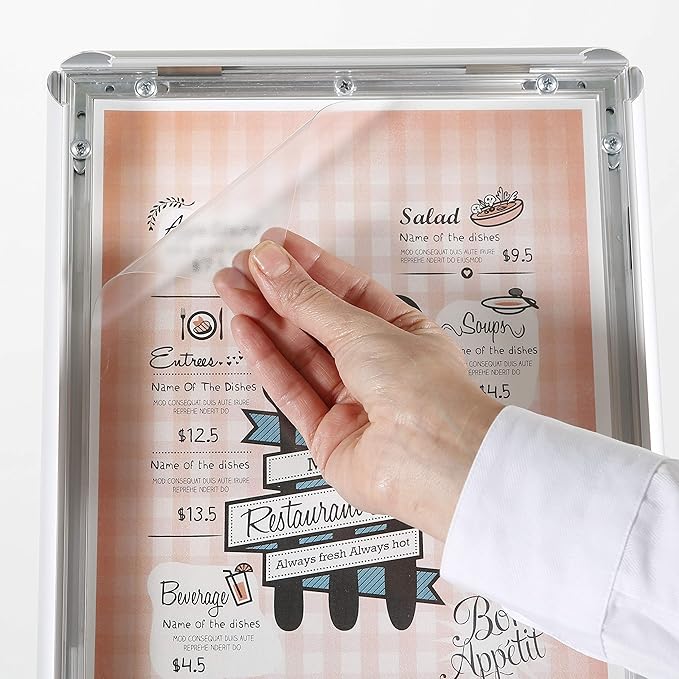 Salad
Name of the dishes
MOD CONSEQUAT DUIS AUTE IRURE
REPREHE NDERIT DO EIUSMOD
$9.5
Entrees
Name Of The Dishes
MOD CONSEQUAT DUIS AUTE IRURE
REPREHE NDERIT DO
$12.5
Name of the dishes
MOD CONSEQUAT DUIS AUTE IRURE
REPREHE NDERIT DO
$13.5
Soups
he dishes
DUIS AUTE
DO
$4.5
Restaurant
Always fresh Always hot
Beverage
Name of the dishes
MOD CONSEQUAT DUIS AUTE IRURE
REPREHE NDERIT DO
$4.5
Bon
Appetit